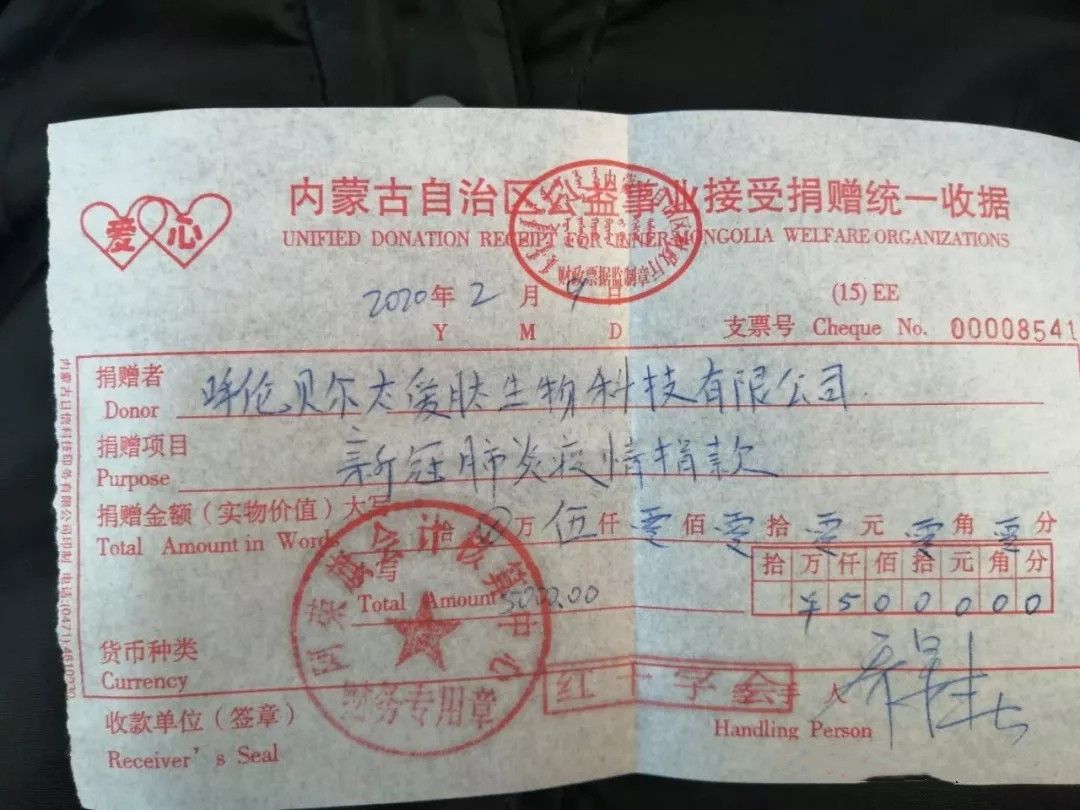 爱心
内蒙古自治区公益事业接受捐赠统一收据
UNIFIED DONATION RECEIPT FOR INNER MONGOLIA WELFARE ORGANIZATIONS
财政票据监制章
2020年 2月 9日
(15) EE
Y M D
支票号 Cheque No. 00008541
捐赠者
Donor
呼伦贝尔大爱肽生物科技有限公司
捐赠项目
Purpose
新冠肺炎疫情捐款
捐赠金额(实物价值)大写
Total Amount in Words
拾 万 伍仟 零佰 零拾 零元 零角 零分
小写
Total Amount 5000.00
拾万仟佰拾元角分
¥500000
货币种类
Currency
会计核算中心
财务专用章
红十字会
收款单位(签章)
Receiver's Seal
经手人
Handling Person